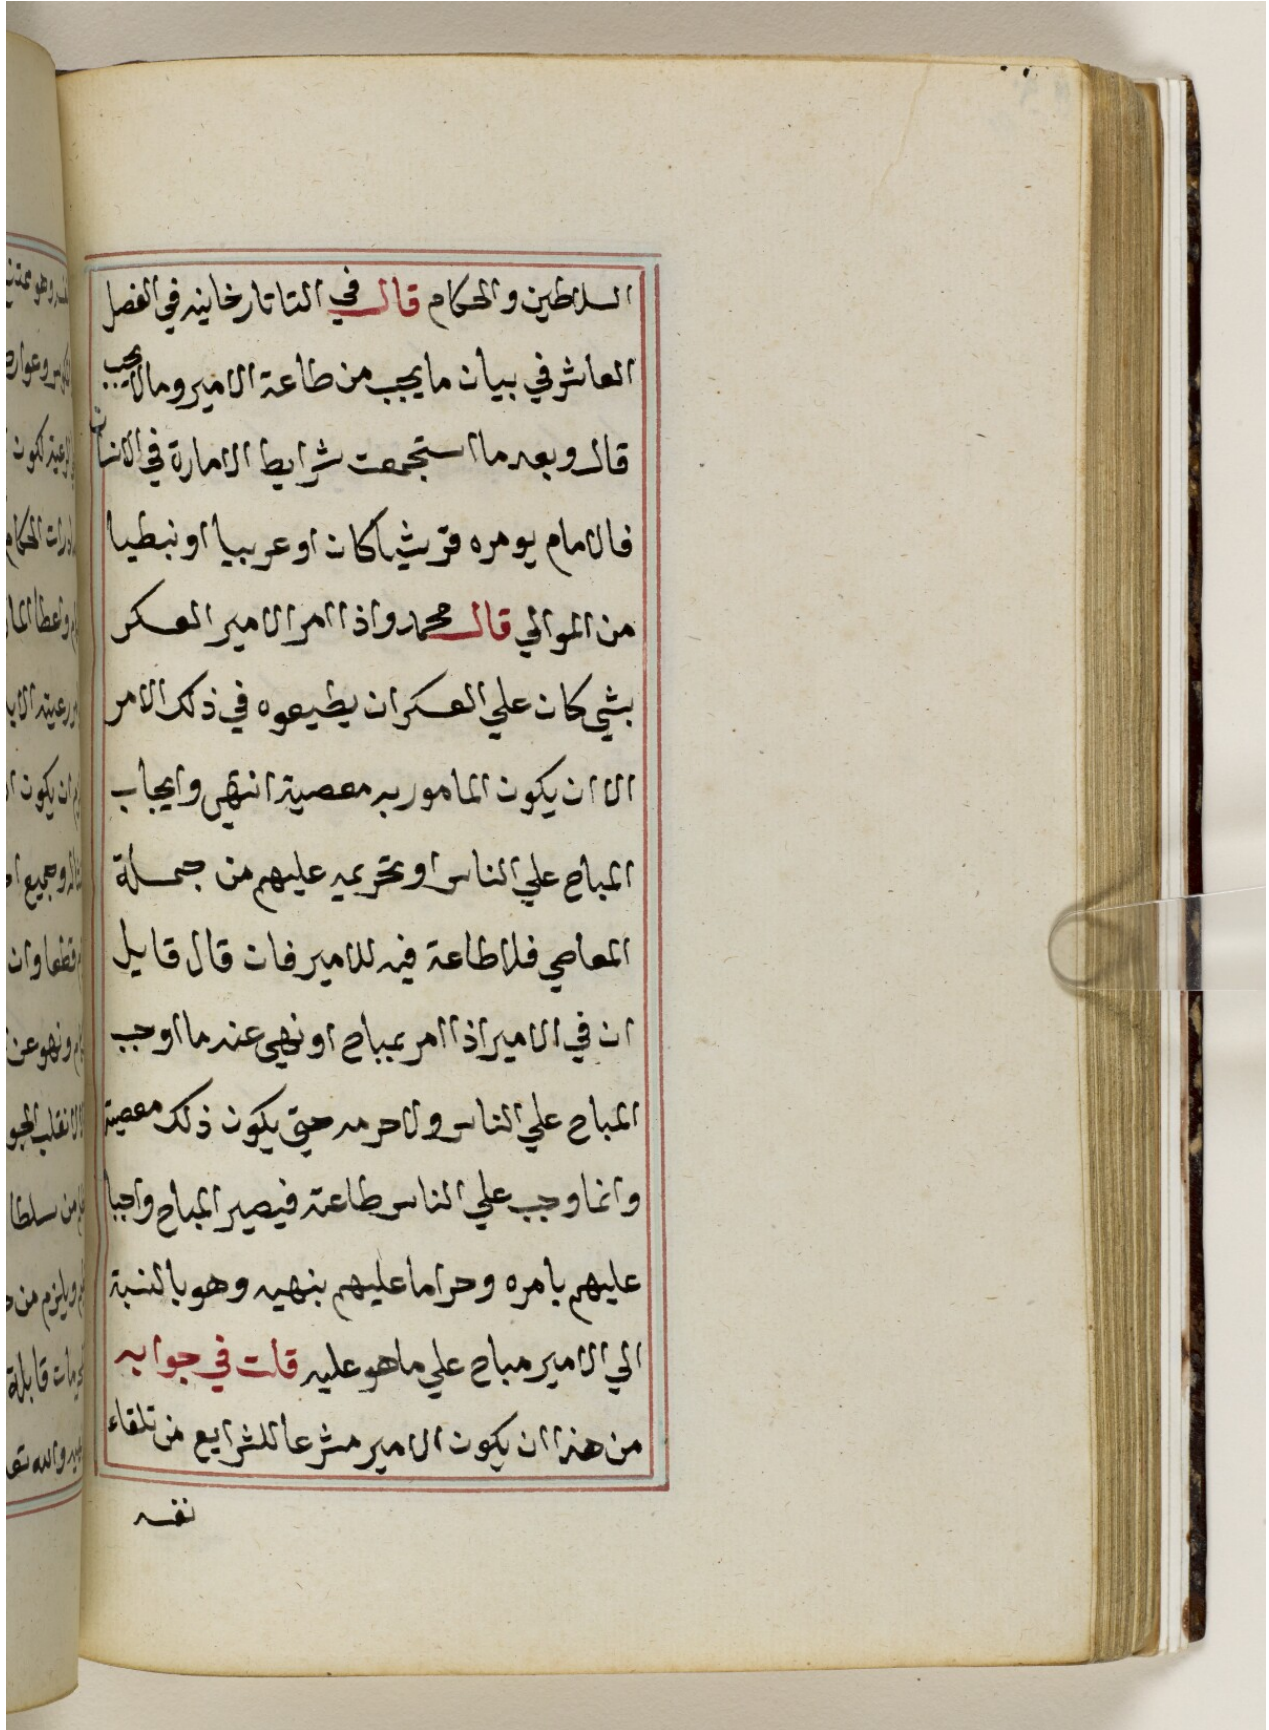 السلاطين والحكام قال في التاتارخانيه في الفصل
العاشر في بيان ما يجب من طاعة الامير وما لا يجب
قال وبعد ما استجمعت شرايط الامارة في الانسان
فالامام يومره قريشيا كان او عربيا او نبطيا
من الموالي قال محمد واذا امر الامير العسكر
بشي كان علي العسكر ان يطيعوه في ذلك الامر
الا ان يكون المامور به معصية انتهى وايجاب
المباح علي الناس او تحريمه عليهم من جملة
المعاصي فلا طاعة فيه للامير فان قال قايل
ان في الامير اذا امر بمباح او نهي عنه ما اوجب
المباح علي الناس ولا حرمه حتى يكون ذلك معصية
وانما وجب علي الناس طاعته فيصير المباح واجبا
عليهم بامره وحراما عليهم بنهيه وهو بالنسبة
الي الامير مباح علي ما هو عليه قلت في جوابه
من هذا ان يكون الامير مشرعا للشرايع من تلقاء
نفسه